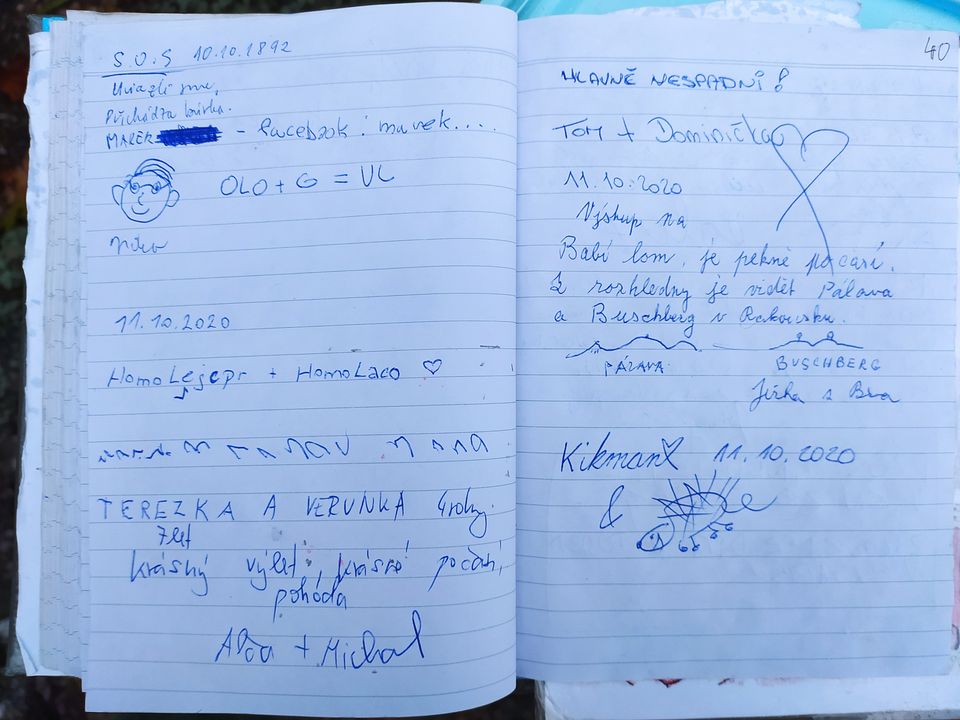 S.O.S 10.10.1892
Uviazli sme,
Přichádza búrka.
MAREK - facebook: marek....
OLO + G = VL
11.10.2020
HomoLejepr + HomoLaco ♡
TEREZKA A VERUNKA 4roky
7let
krásný výlet, krásné počasí,
pohoda
+ Michal
40
HLAVNĚ NESPADNI!
TOM + Dominička
11.10.2020
Výstup na
Babí lom, je pěkné počasí.
Z rozhledny je vidět Pálava
a Buschberg v Rakousku.
PÁLAVA BUSCHBERG
Jirka z Brna
Kikman 11.10.2020
&